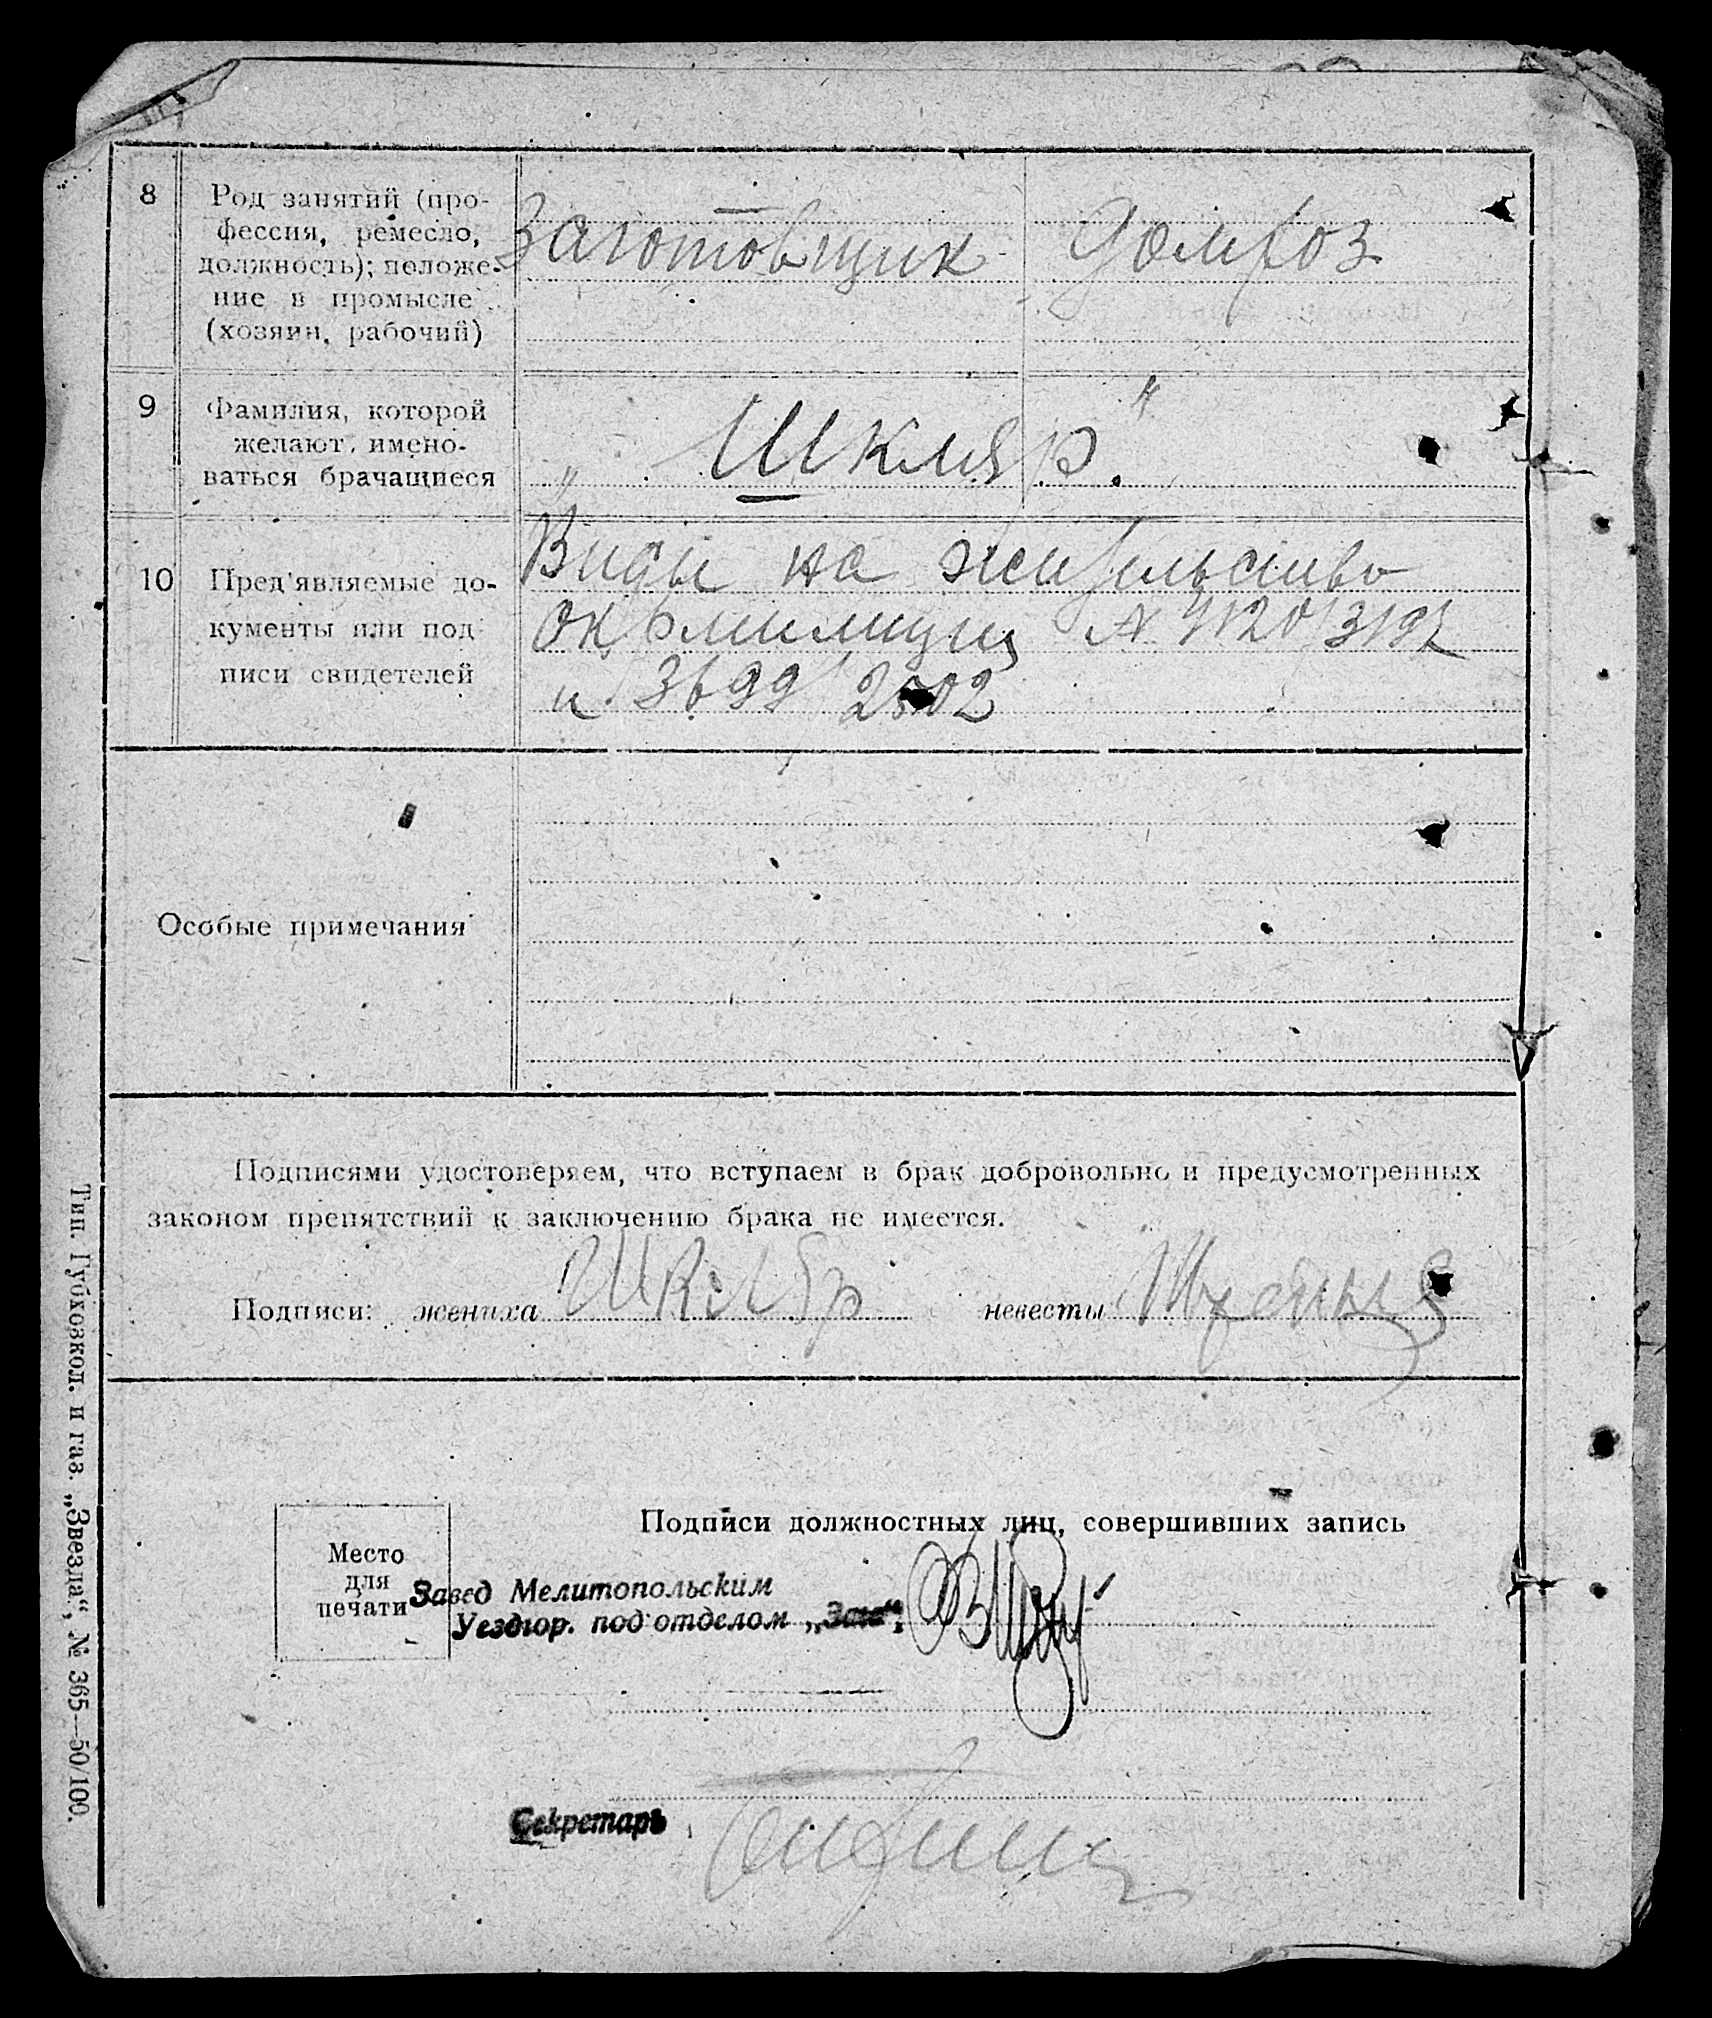 8
Род занятий (про-
фессия, ремесло,
должность); положе-
ние в промысле
(хозяин, рабочий)
Заготовщик
домхоз
9
Фамилия, которой
желают, имено-
ваться брачащиеся
„ Шкляр. "
10
Пред'являемые до-
кументы или под
писи свидетелей
Виды на жительство
Окрмилиции № 4120/3197
и 3699/2502
Особые примечания
Подписями удостоверяем, что вступаем в брак добровольно и предусмотренных
законом препятствий к заключению брака не имеется.
Подписи: жениха Шкляр невесты
Подписи должностных лиц, совершивших запись
Место
для
печати
Завед Мелитопольским
Уездгор. под'отделом „Загс",
Секретарь
Тип. Губхозкол. и газ. „Звезда", № 365—50/100.